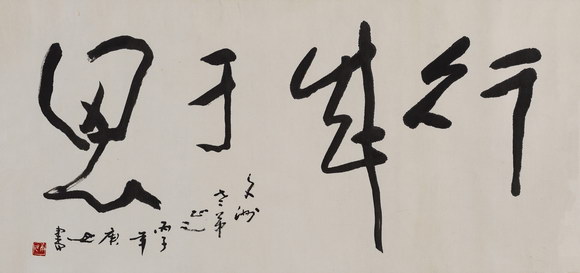 行成于思
文洲
老弟
正之
丙子
年
書